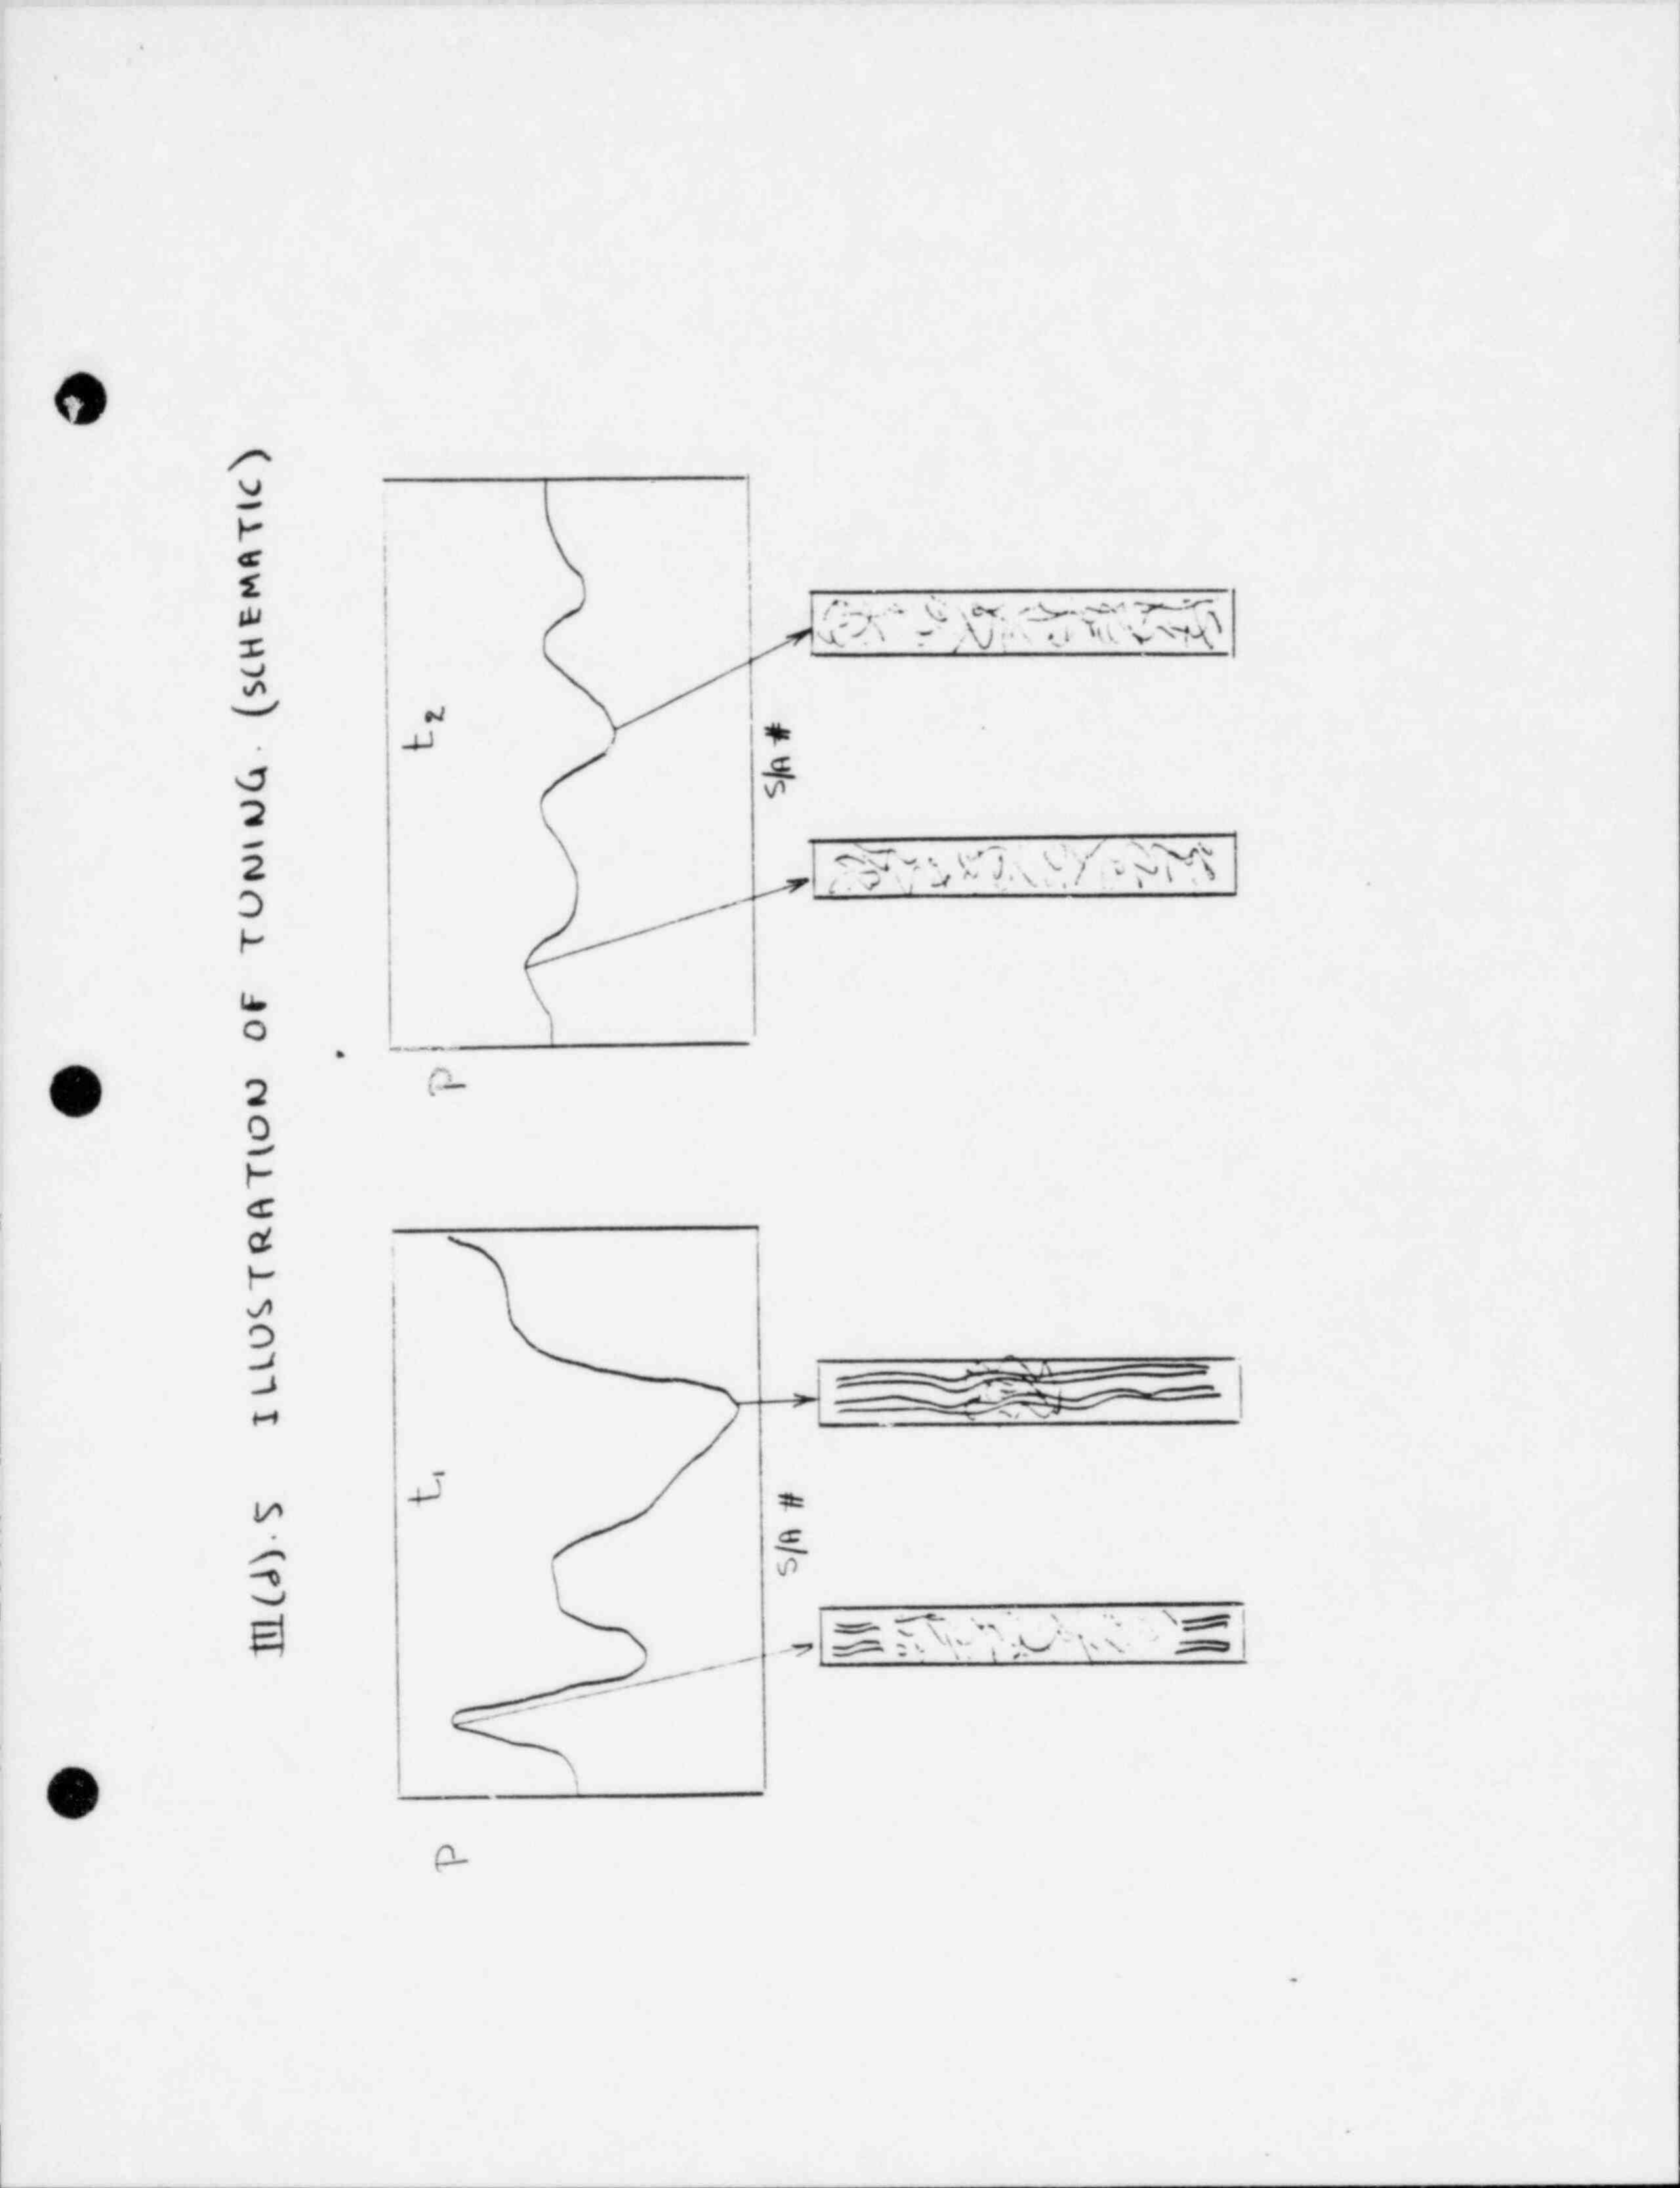 III(d).5 ILLUSTRATION OF TUNING. (SCHEMATIC)
P
t₁
S/A #
P
t₂
S/A #